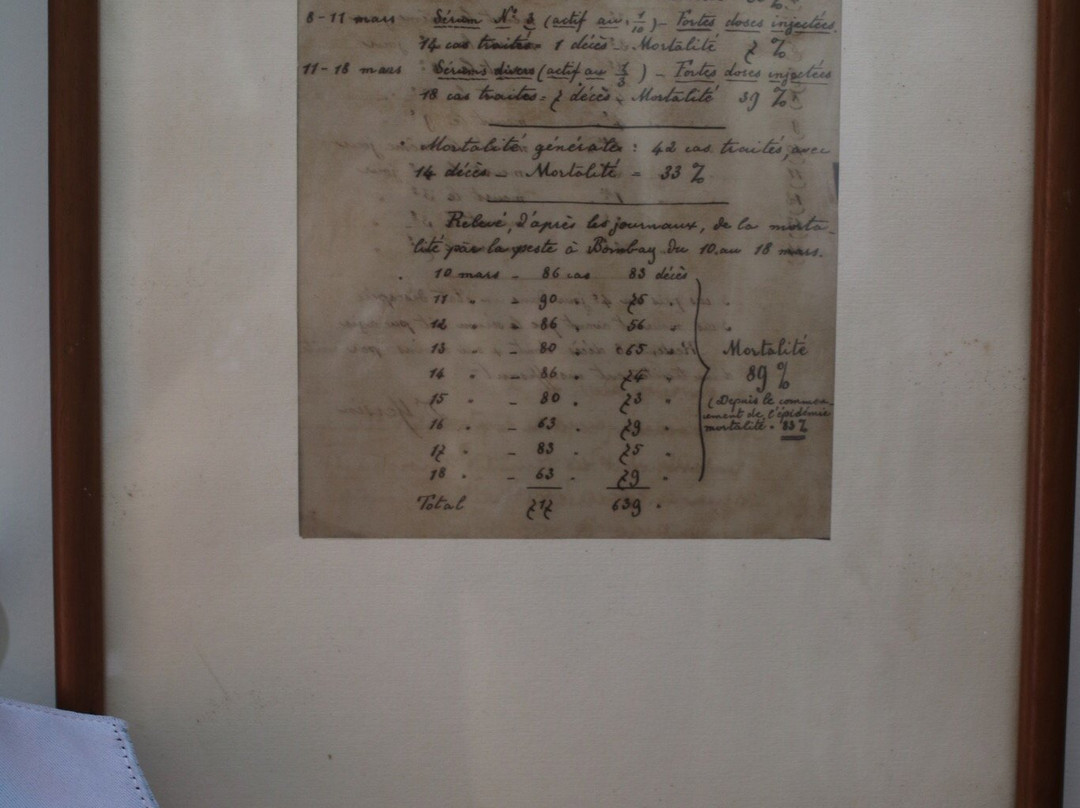 8-11 mars Sérum N° 3 (actif au 1/10) - Fortes doses injectées.
14 cas traités = 1 décès - Mortalité 7 %
11-18 mars Sérums divers (actif au 1/3) - Fortes doses injectées
18 cas traités = 7 décès - Mortalité 39 %
Mortalité générale : 42 cas traités, avec
14 décès - Mortalité = 33 %
Relevé, d'après les journaux, de la morta-
lité par la peste à Bombay du 10 au 18 mars.
10 mars - 86 cas 83 décès
11 - 90 75 "
12 - 86 56 "
13 " - 80 " 65 "
14 " - 86 " 74 "
15 " - 80 " 73 "
16 " - 63 " 79 "
17 " - 83 " 75 "
18 " - 63 " 79 "
Total 717 639 "
Mortalité
89 %
(Depuis le commen-
cement de l'épidémie
mortalité = 83 %